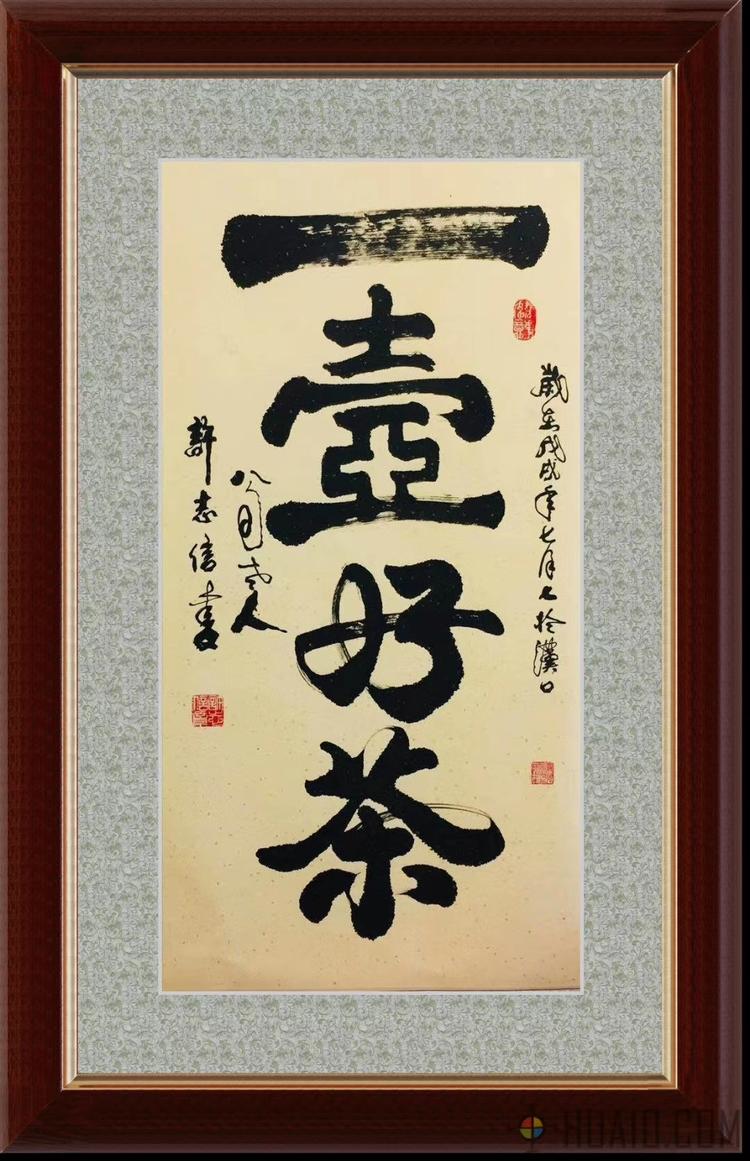 一壺好茶
歲在戊戌年七月七於漢口
八閩老人
許志信書
HUAIO.COM